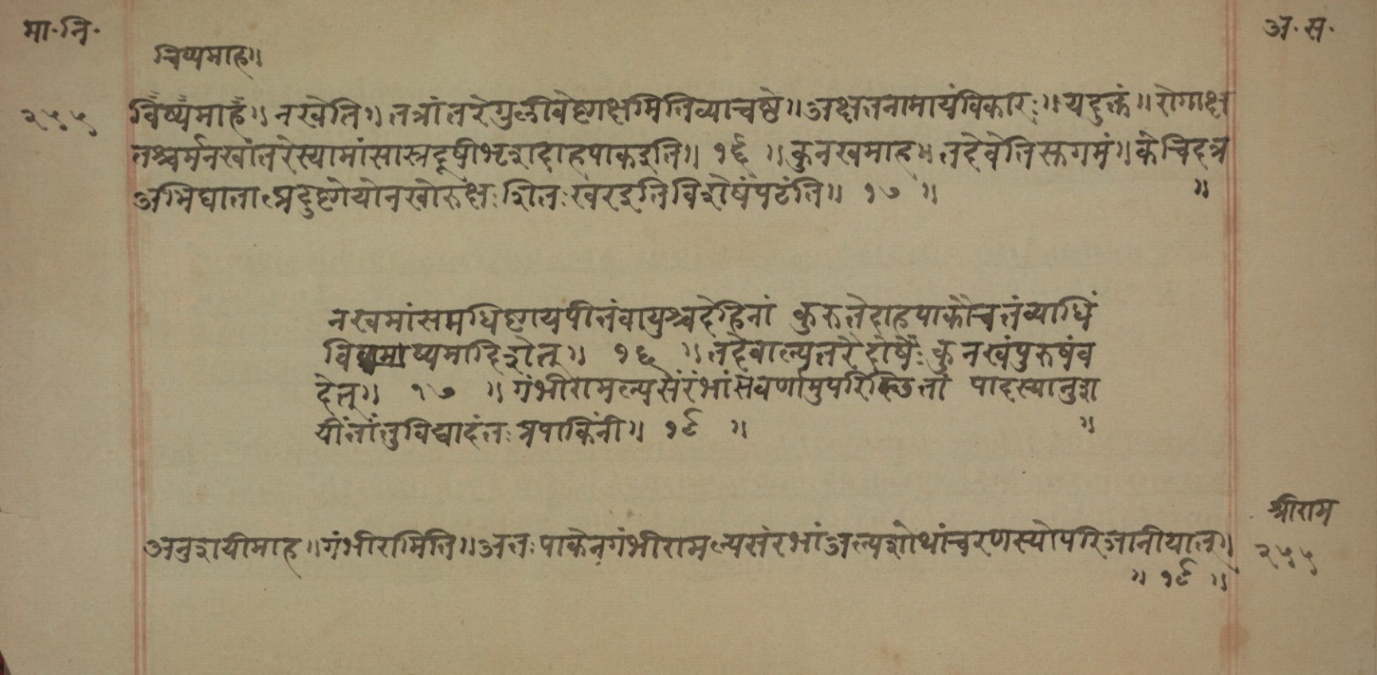 मा॰नि॰
अ॰स॰
चिप्यमाह॥
२५५
विष्यमाह॥ नखेति॥ तत्रांतरेगुलीवेष्टाक्षमितिव्याचष्ठे॥ अक्षतनामायंविकारः॥ यदुक्तं॥ रोगाक्ष
तश्चर्मनखांतरेस्यामांसास्रदूषीभृशदाहपाकइति॥ १६ ॥ कुनखमाह॥ तदेवेतिस्तगमं॥ केचिदत्र
अभिघातात्प्रदुष्टोयोनखोरुक्षःशितःखरइतिविशेषंपटंति॥ १७ ॥ ॥
नखमांसमधिष्टायपीतंवायुश्चदेहिनां कुरुतेदाहपाकौचतंव्याधिं
विप्यमादिशेत्॥ १६ ॥ तदेवाल्पतरैर्दोषैः कुनखंपुरुषंव
देत्॥ १७ ॥ गंभीरामल्पसंरंभांसवर्णामुपरिस्थितां पादस्यानुश
यींतांतुविद्यादंतःप्रपाकिनी॥ १८ ॥ ॥
श्रीराम
अनुशयीमाह॥ गंभीरमिति॥ अतःपाकेनगंभीरामल्पसंरभांअल्पशोथांचरणस्योपरिजानीयात्॥
२५५
॥ १८ ॥